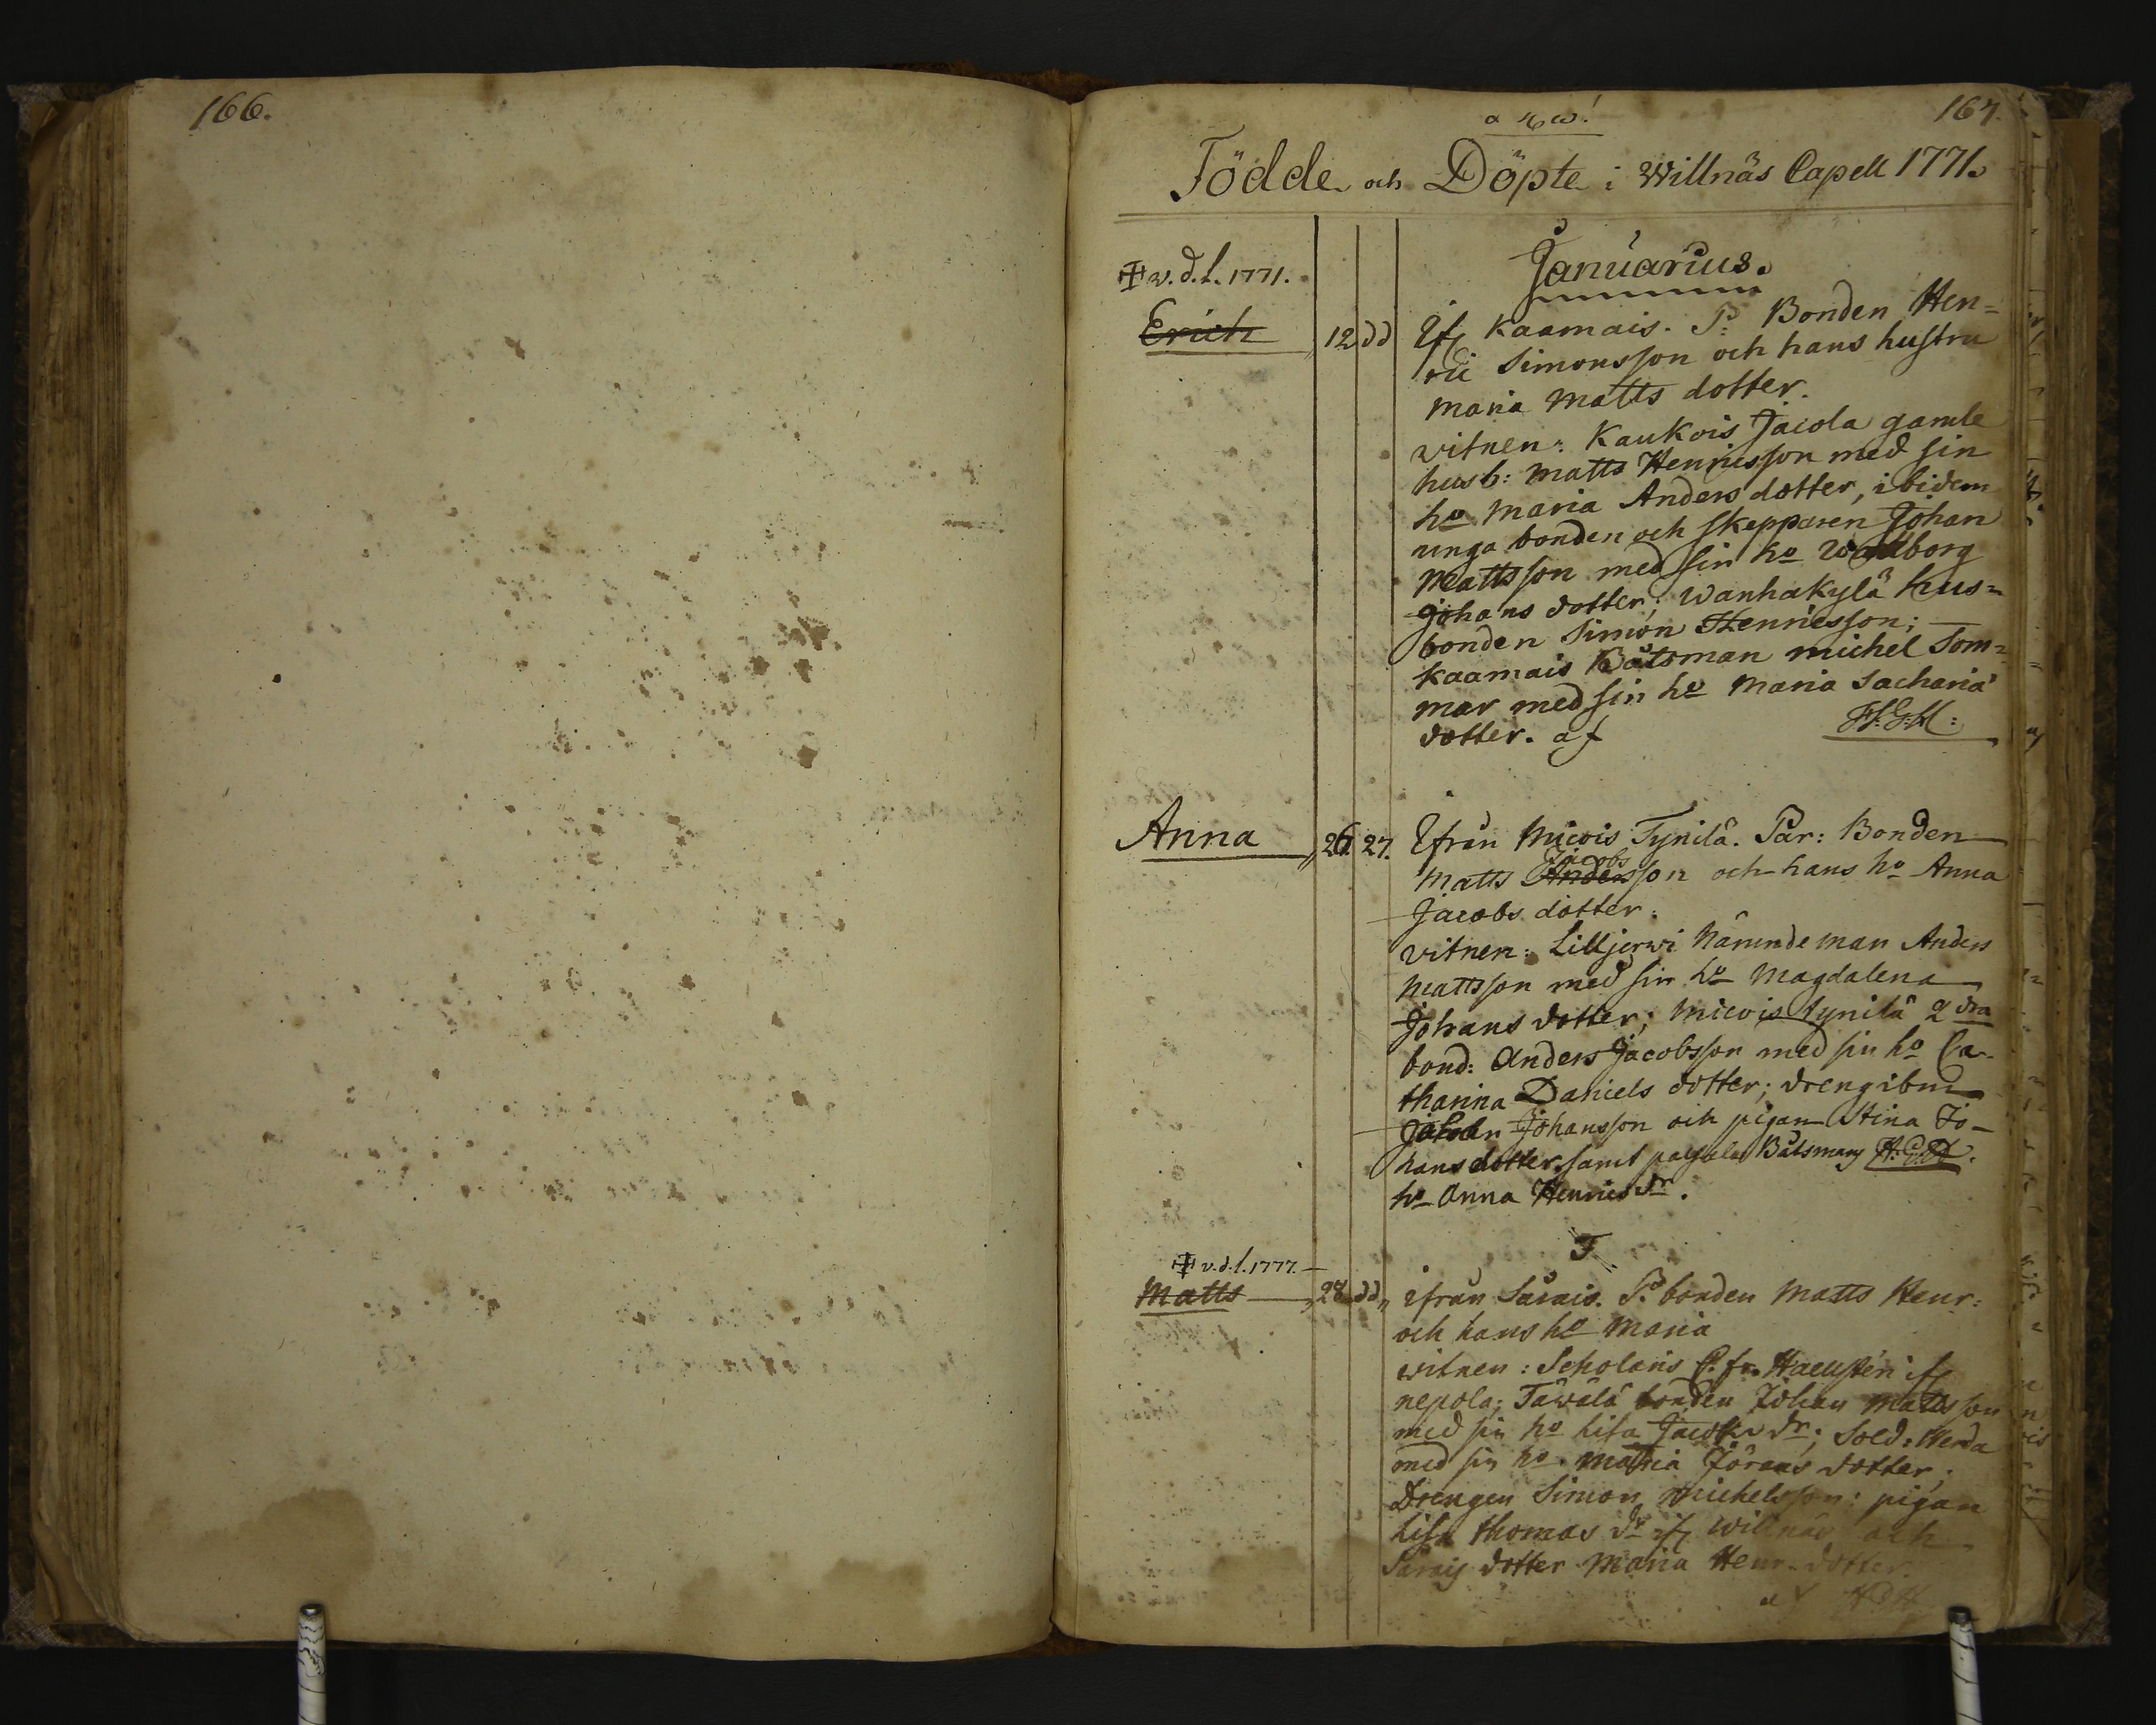 166.
167.
a & ω!
Födde och Döpte i Willnäs Capell 1771.
Januarius.
v. d. l. 1771.
Erich 12 dd Kaamais. P: Bonden Hen=
ric Simonsson och hans hustru
Maria Matts dotter.
vitnen: Kaukois Jacola gamle
husb: Matts Henricsson med sin
ho Maria Anders dotter, ibidem
unga bonden och skepparen Johan
Mattsson med sin ho Wallborg
Johans dotter; Wanhakylä hus=
bonden Simon Henricsson;
Kaamais Båtsman Michel Som=
mar med sin ho Maria Sacharia
dotter. af
Anna 26. 27. Ifrån Micois Tynilä. Par: Bonden
Jacobs
Matts Andersson och hans ho Anna
Jacobs dotter.
vitnen: Lilljerwi Nämndeman Anders
Mattsson med sin ho Magdalena
Johans dotter; Micois Tynilä 2dra
bond: Anders Jacobsson med sin ho Ca-
tharina Daniels dotter; dreng ibm
Johansson och pigan Stina Jo-
hans dotter, samt Båtsmans
ho Anna Henrics dr.
F
v. d. l. 1777.
Matts 28 dd ifrån Sarais. P. bonden Matts Henr:
och hans ho Maria
vitnen: Scholaris
nepola; Tawala bonden Johan Mattsson
med sin ho Lisa Jacobs dr; Sold: Werda
med sin ho Maria Jörans dotter;
Drengen Simon Michelsson: pigan
Lisa Thomas dr Willnäs och
Sarais dotter Maria Henr. dotter.